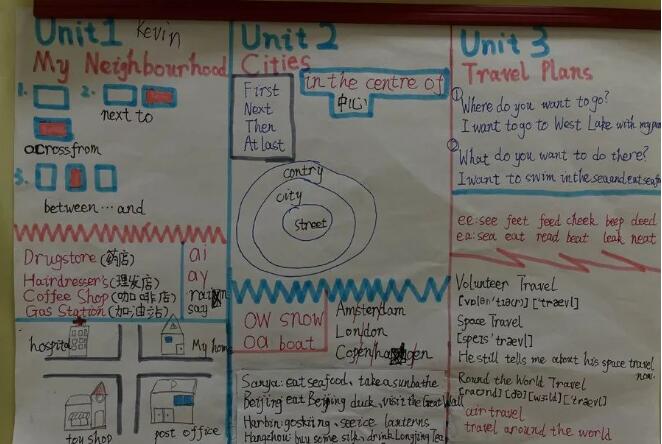 Unit1 Kevin
My Neighbourhood
1. 2.
next to
acrossfrom
3.
between … and
Drugstore (药店)
Hairdresser's (理发店)
Coffee Shop (咖啡店)
Gas Station (加油站)
ai
ay
rain
say
hospital
My home
toy shop
post office
Unit 2
Cities
First
Next
Then
At last
in the centre of
中心
contry
city
street
ow snow
oa boat
Amsterdam
London
Copenhagen
Sanya: eat seafood, take a sunbathe
Beijing eat Beijing duck, visit the Great Wall
Harbin: go skiing, see ice lanterns
Hangzhou: buy some silk, drink Longjing Tea
Unit 3
Travel Plans
① Where do you want to go?
I want to go to West Lake with my
② What do you want to do there?
I want to swim in the sea and eat
ee: see feet feed cheek beep deed
ea: sea eat read beat leak neat
Volunteer Travel
Space Travel
He still tells me about his space travel
now.
Round the World Travel
air travel
travel around the world